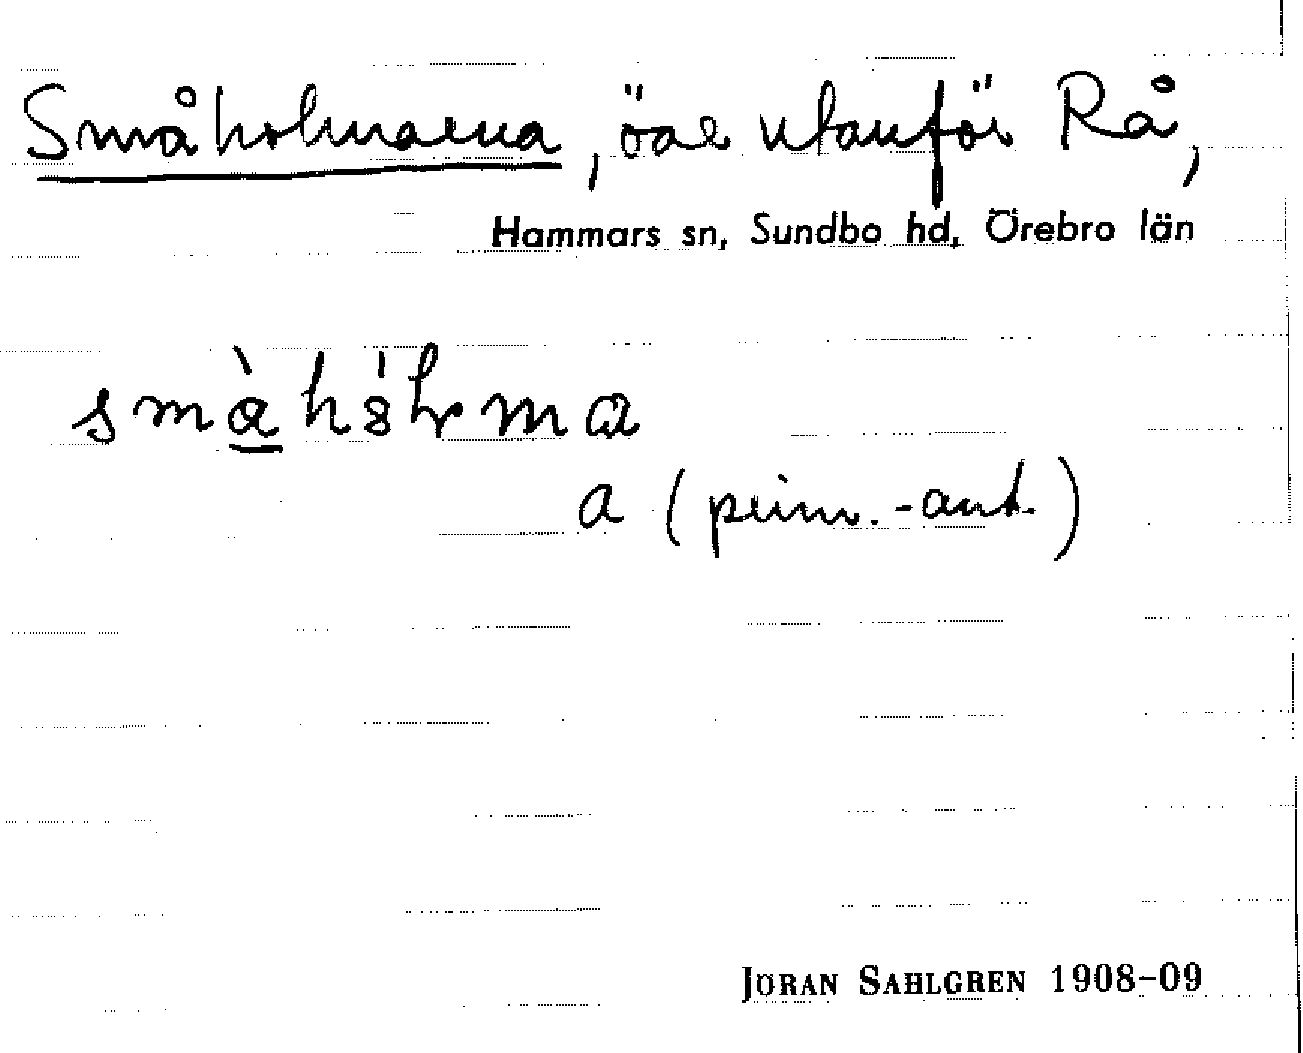 Småholmarna, öar utanför Rå,
Hammars sn, Sundbo hd, Örebro län
a (prim.-ant.)
JÖRAN SAHLGREN 1908–09